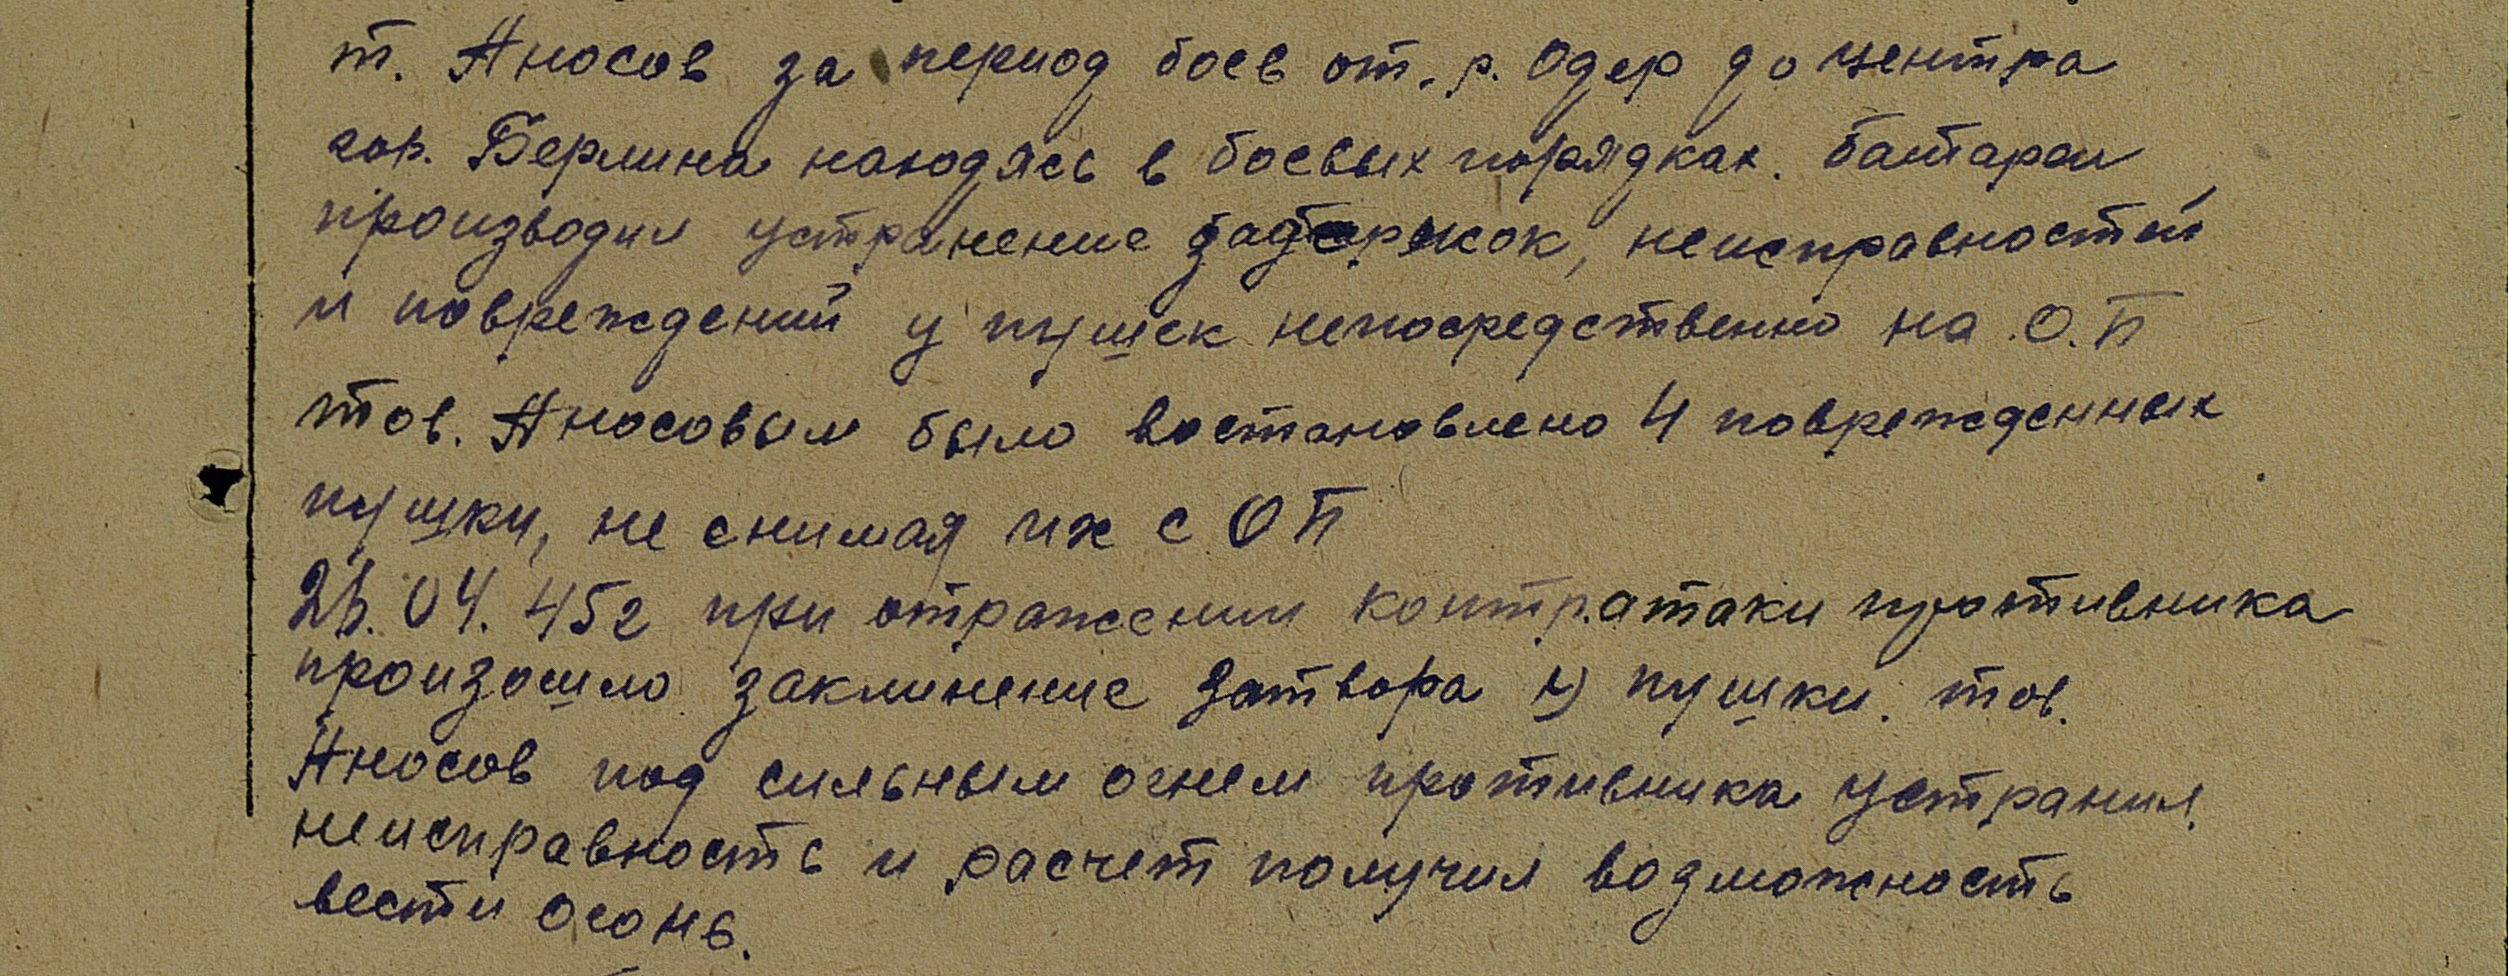 т. Аносов за период боев от. р. Одер до центра
гор. Берлина находясь в боевых порядках. батареи
производил устранение задержок, неисправностей
и повреждений у пушек непосредственно на О.П
тов. Аносовым было востановлено 4 поврежденных
пушки, не снимая их с ОП
04. 45г при отражении контратаки противника
произошло заклинение затвора у пушки. тов.
Аносов под сильным огнем противника устранил
неисправность и расчет получил возможность
вести огонь.